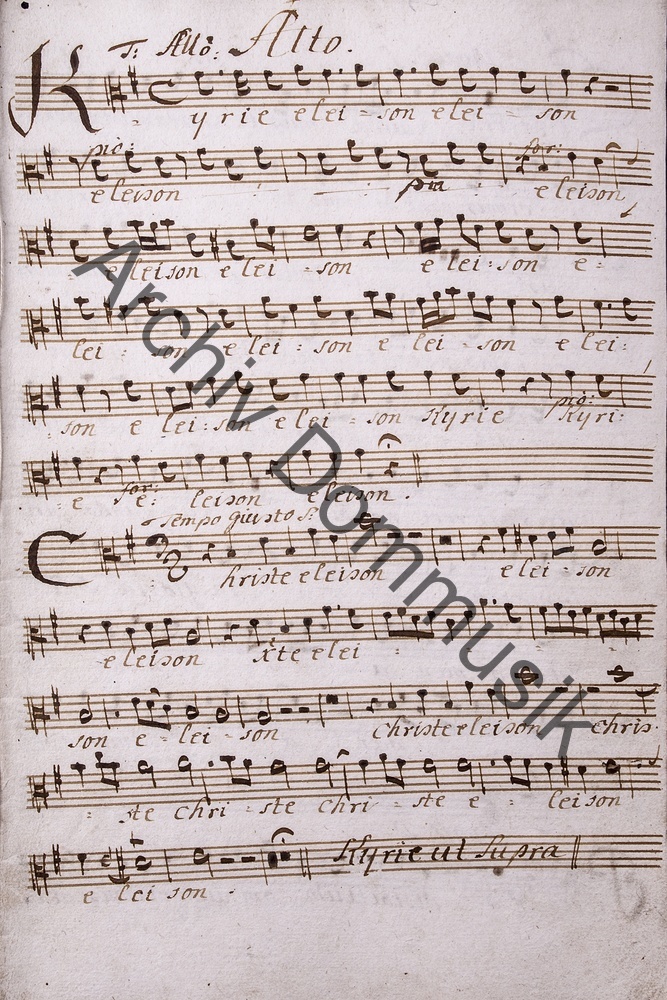 T: Allo: Alto.
Kyrie elei - son elei - son
pio: for:
eleison pia eleison
eleison elei - son elei - son e -
lei - son elei - son elei - son elei -
son elei - son elei - son Kyrie pio: Kyri -
e for: e - leison eleison.
Tempo giusto S:
Christe eleison elei - son
eleison xte elei -
son e - lei - son Christe eleison Chris -
ste Chri - ste Chri - ste e - leison
e leison. Kyrie ut Supra
Archiv Dommusik